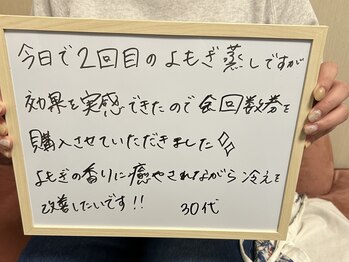 今日で2回目のよもぎ蒸しですが
効果を実感できたので回数券を
購入させていただきました
よもぎの香りに癒やされながら冷えを
改善したいです!!
30代